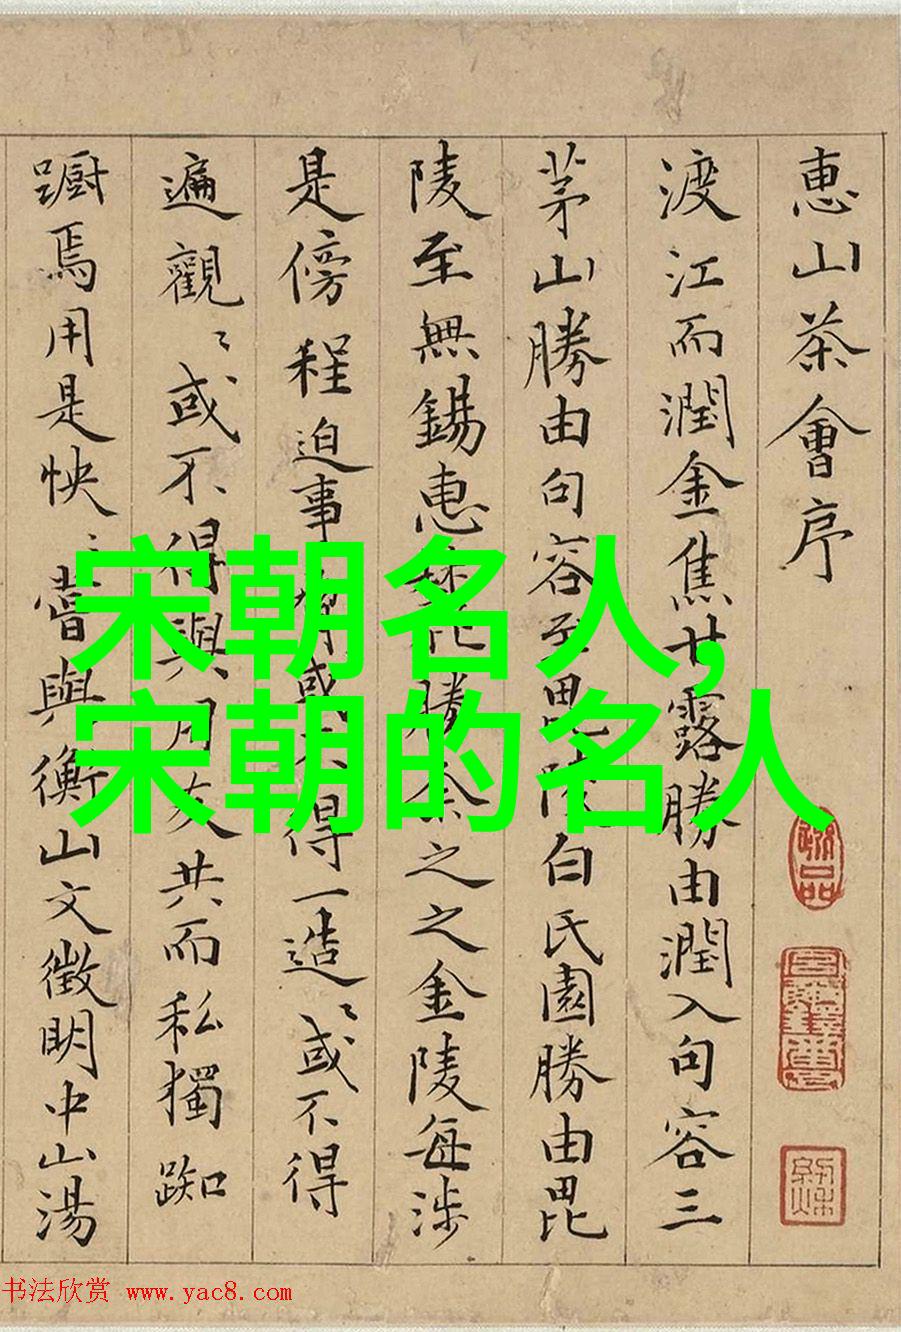 惠山茶會序
渡江而潤金焦甘露勝由潤入句容三
茅山勝由句容至毘陵白氏園勝由毘
陵至無錫惠勝余之之金陵每涉
是傍程迫事或得一造〻或不得
遍觀〻或不得與用友共而私獨踟
躕焉用是怏〻嘗與衡山文徵明中山湯
宋朝名人,
宋朝的名人
书法欣赏 www.yac8.com